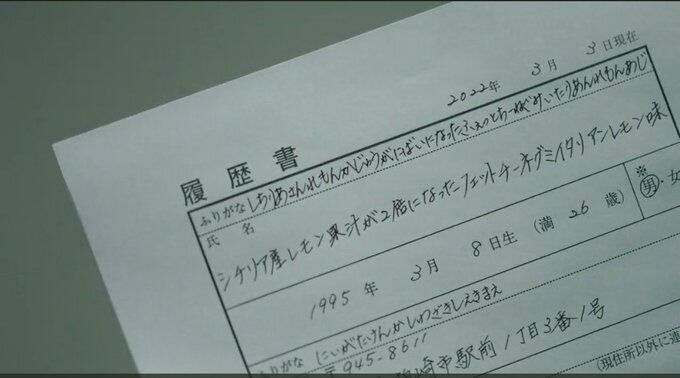 2022年 3月 3日現在
履歴書
ふりがな しちりあさんれもんかじゅうがにばいになったふぇっとちーねぐみいたりあんれもんあじ
氏 名
シチリア産レモン果汁が2倍になったフェットチーネグミイタリアンレモン味
※
男・女
1995年 3月 8日生 (満 26 歳)
ふりがな にいがたけんかしわざきしえきまえ
〒945-8611
崎市駅前1丁目3番1号
(現住所以外に連